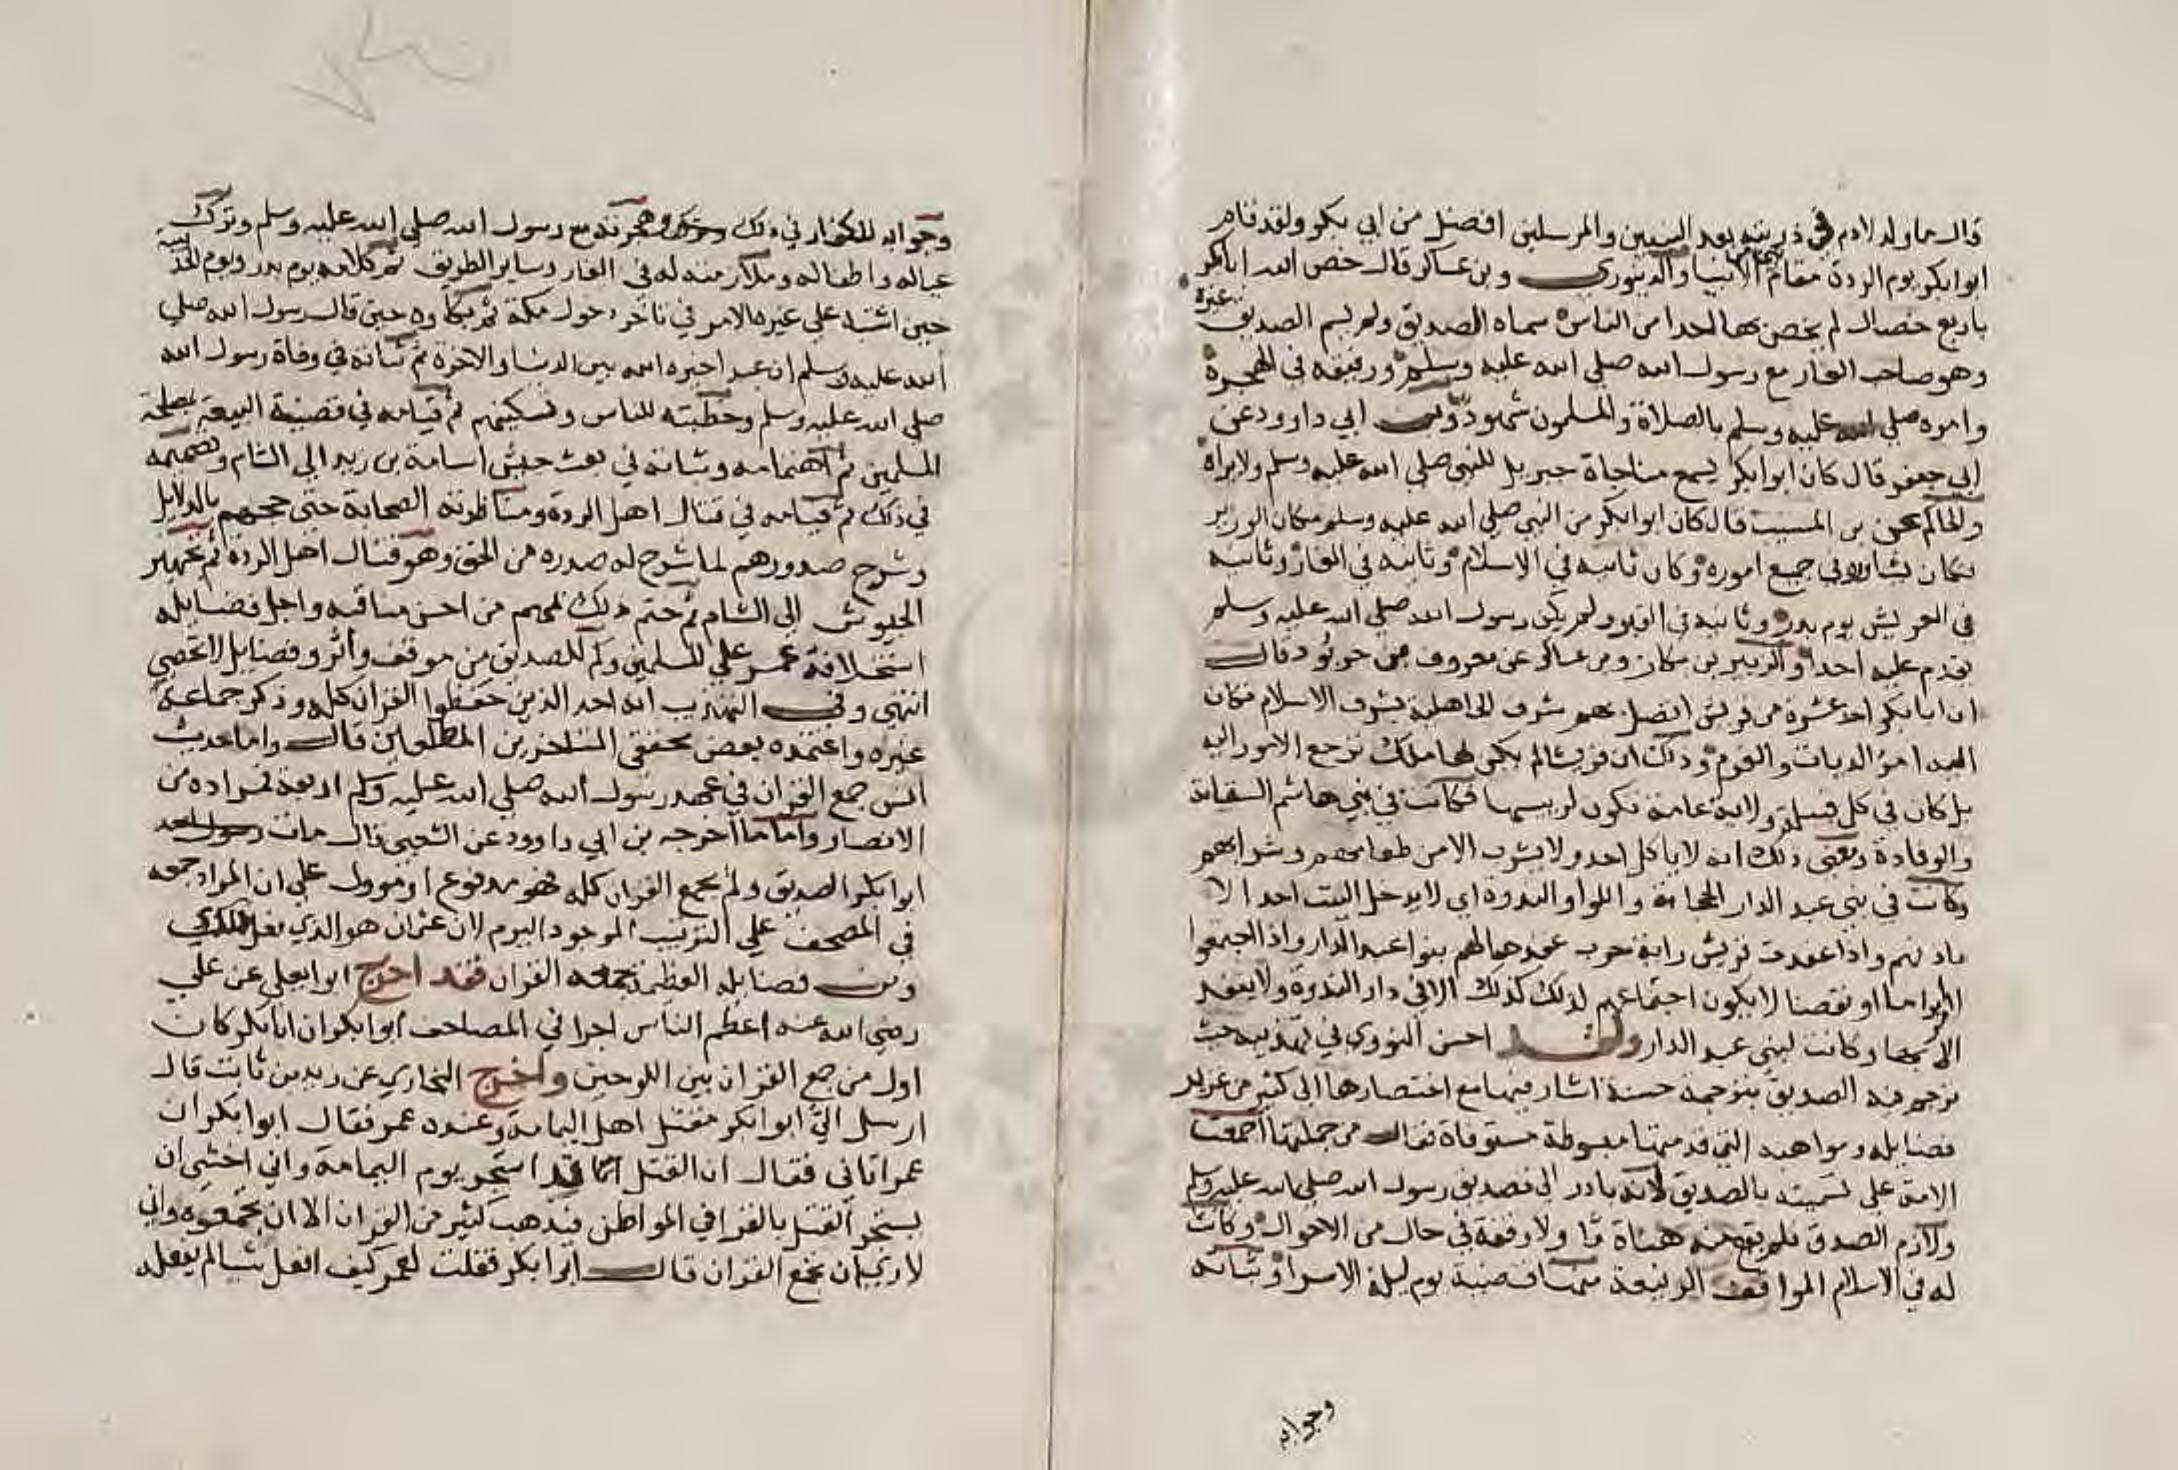 قال ما ولد لادم في ذريته بعد النبيين والمرسلين افضل من ابي بكر ولقد قام
ابوابكر يوم الردة مقام نبي من الانبيا والدينوري وبن عساكر قال خص الله ابابكر
باربع خصال لم يخص بها احدا من الناس سماه الصديق ولم يسم الصديق غيره
وهو صاحب الغار مع رسول الله صلى الله عليه وسلم ورفيقه في الهجرة
وامره صلى الله عليه وسلم بالصلاة والمسلمون شهود وبن ابي دارود عن
ابي جعفر قال كان ابوابكر يسمع مناجاة جبريل للنبي صلى الله عليه وسلم ولايراه
والحاكم عن بن المسيب قال كان ابوابكر من النبي صلى الله عليه وسلم مكان الوزير
فكان يشاوره في جميع اموره وكان ثانيه في الاسلام وثانيه في الغار وثانيه
في العريش يوم بدر وثانيه في القبر ولم يكن رسول الله صلى الله عليه وسلم
يقدم عليه احدا والزبير بن بكار وبن عساكر عن معروف بن خربوذ قال
ان ابابكر احد عشرة من قريش اتصل بهم شرف الجاهلية بشرف الاسلام فكان
اليه امر الديات والغرم وذلك ان قريشا لم يكن لها ملك ترجع الامور اليه
بل كان في كل قبيلة ولاية عامة تكون لريسها فكانت في بني هاشم السقاية
والوفادة ومعنى ذلك انه لاياكل احد ولا يشرب الا من طعامهم وشرابهم
وكانت في بني عبد الدار الحجابة واللوا والندوة اي لايدخل البيت احد الا
باذنهم واذا عقدت قريش راية حرب عقدها لهم بنوا عبد الدار واذا اجتمعوا
ابراما او نقضا لايكون اجتماعهم لذلك كذلك الا في دار الندوة ولاينفذ
الا بها وكانت لبني عبد الدار ولقد احسن النووي في تهذيبه حيث
ترجم فيه الصديق بترجمة حسنة اشار فيها مع اختصارها الى كثير من غرر
فضايله ومواهبه التي قدمتها مبسوطة مستوفاة فقال من جملتها اجمعت
الامة على تسميته بالصديق لانه بادر الى تصديق رسول الله صلى الله عليه وسلم
ولازم الصدق فلم يقع منه هناة ما ولا وقفة في حال من الاحوال وكانت
له في الاسلام المواقف الرفيعة منها قضية يوم ليلة الاسرا وثباته
وجوابه
وجوابه للكفار في ذلك وهجرته مع رسول الله صلى الله عليه وسلم وترك
عياله واطفاله وملازمته له في الغار وساير الطريق ثم كلامه يوم بدر ويوم الحديبية
حين اشتبه على غيره الامر في تاخر دخول مكة ثم بكاوه حين قال رسول الله صلى
الله عليه وسلم ان عبدا خيره الله بين الدنيا والاخرة ثم ثباته في وفاة رسول الله
صلى الله عليه وسلم وخطبته للناس وتسكينهم ثم قيامه في قضية البيعة بمصلحة
المسلمين ثم اهتمامه وثباته في بعث جيش اسامة بن زيد الى الشام وتصميمه
في ذلك ثم قيامه في قتال اهل الردة ومناظرته الصحابة حتى حجهم بالدلايل
وشرح صدورهم لما شرح له صدره من الحق وهو قتال اهل الردة ثم تجهيز
الجيوش الى الشام ثم ختم ذلك بمهم من احسن مناقبه واجل فضايله
استخلافه عمر على المسلمين وكم للصديق من موقف واثر وفضايل لاتحصى
انتهى وفي التهذيب انه احد الذين حفظوا القران كله وذكر جماعة
غيره واعتمده بعض محققي المتاخرين المطلعين قال واما حديث
انس جمع القران في عهد رسول الله صلى الله عليه وسلم اربعة فمراده من
الانصار واما ما اخرجه بن ابي داوود عن الشعبي قال مات رسول الله
ابوابكر الصديق ولم يجمع القران كله فهو مدفوع او موول على ان المراد جمعه
في المصحف على الترتيب الموجود اليوم لان عثمان هو الذي فعل ذلك
ومن فضايله العظيمة جمعه القران فقد اخرج ابوايعلى عن علي
رضي الله عنه اعظم الناس اجرا في المصاحف ابوابكر ان ابابكر كان
اول من جمع القران بين اللوحين واخرج البخاري عن زيد بن ثابت قال
ارسل الي ابوابكر مقتل اهل اليمامة وعنده عمر فقال ابوابكر ان
عمر اتاني فقال ان القتل قد استحر يوم اليمامة واني اخشى ان
يستحر القتل بالقرا في المواطن فيذهب كثير من القران الا ان يجمعوه واني
لارى ان تجمع القران قال ابوابكر فقلت لعمر كيف افعل شيا لم يفعله